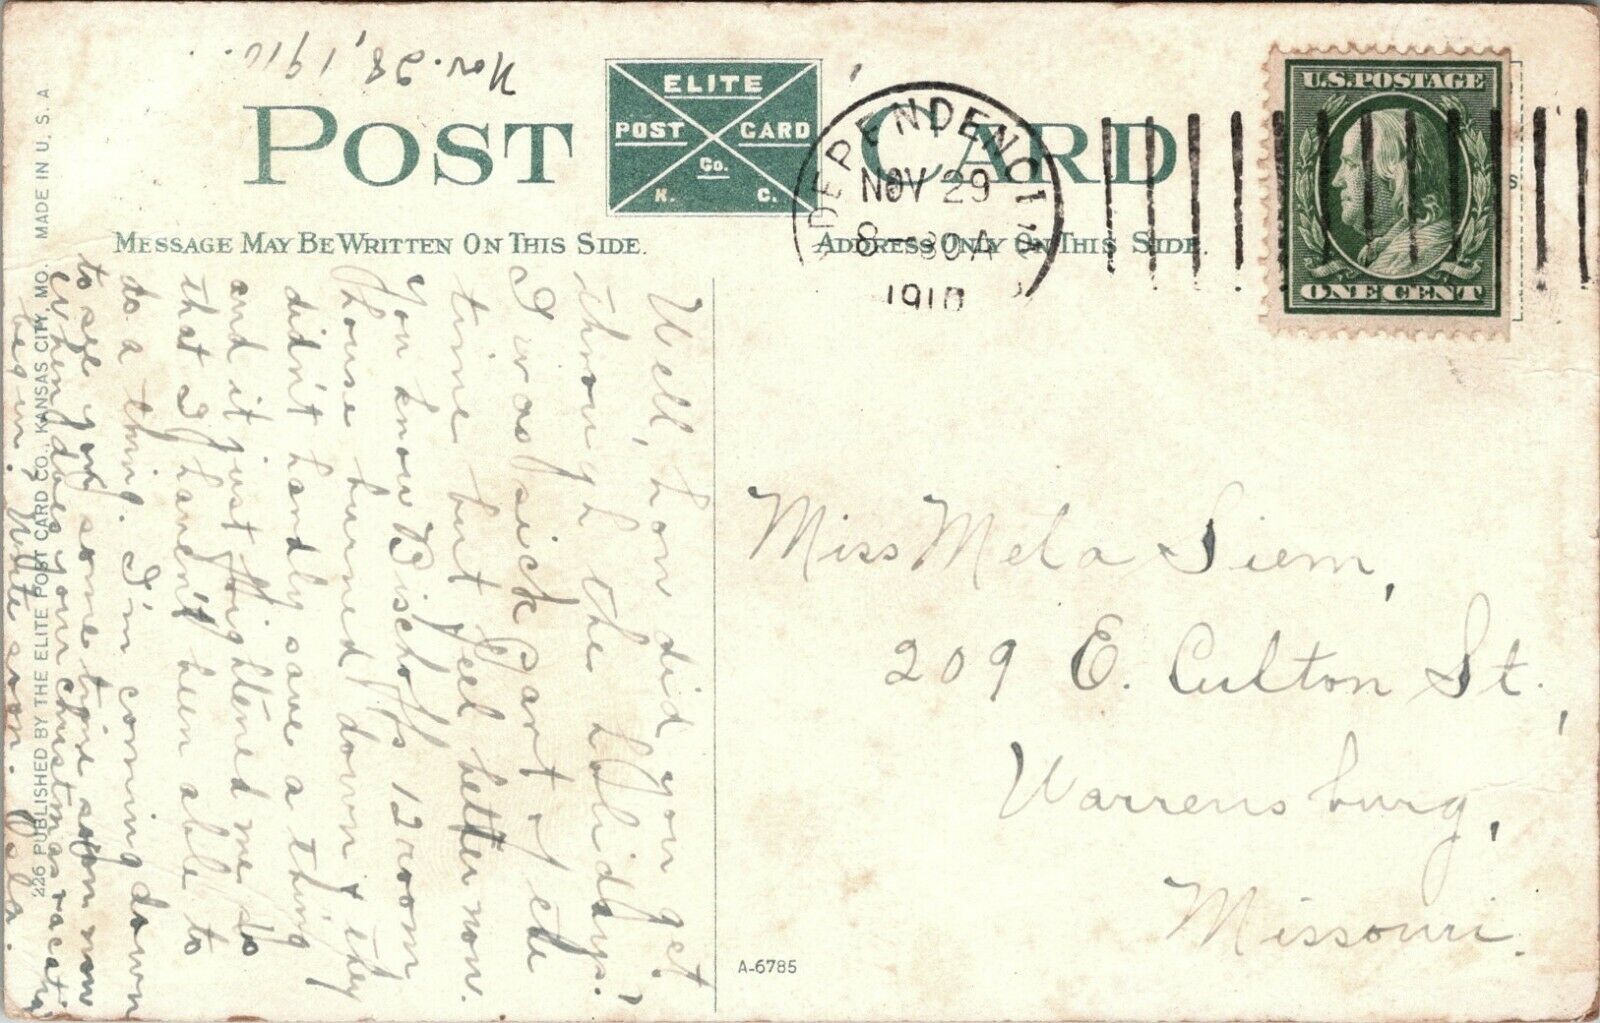 Nov. 28, 1910.
POST CARD
ELITE
POST CARD
Co.
K. C.
MESSAGE MAY BE WRITTEN ON THIS SIDE.
ADDRESS ONLY ON THIS SIDE.
DEPENDENCE
NOV 29
8-30A
1910
U.S. POSTAGE
ONE CENT
Well, how did you get
through the holidays?
I was sick part of the
time but feel better now.
You know Bischoff's 12 room
house burned down & they
didn't hardly save a thing
and it just frightened me so
that I haven't been able to
do a thing. I'm coming down
to see you some time soon now
when does your christmas vacation
begin? Write soon.
Miss Meta Siem,
209 E. Culton St.,
Warrensburg,
Missouri.
A-6785
226 PUBLISHED BY THE ELITE POST CARD CO., KANSAS CITY, MO. MADE IN U. S. A